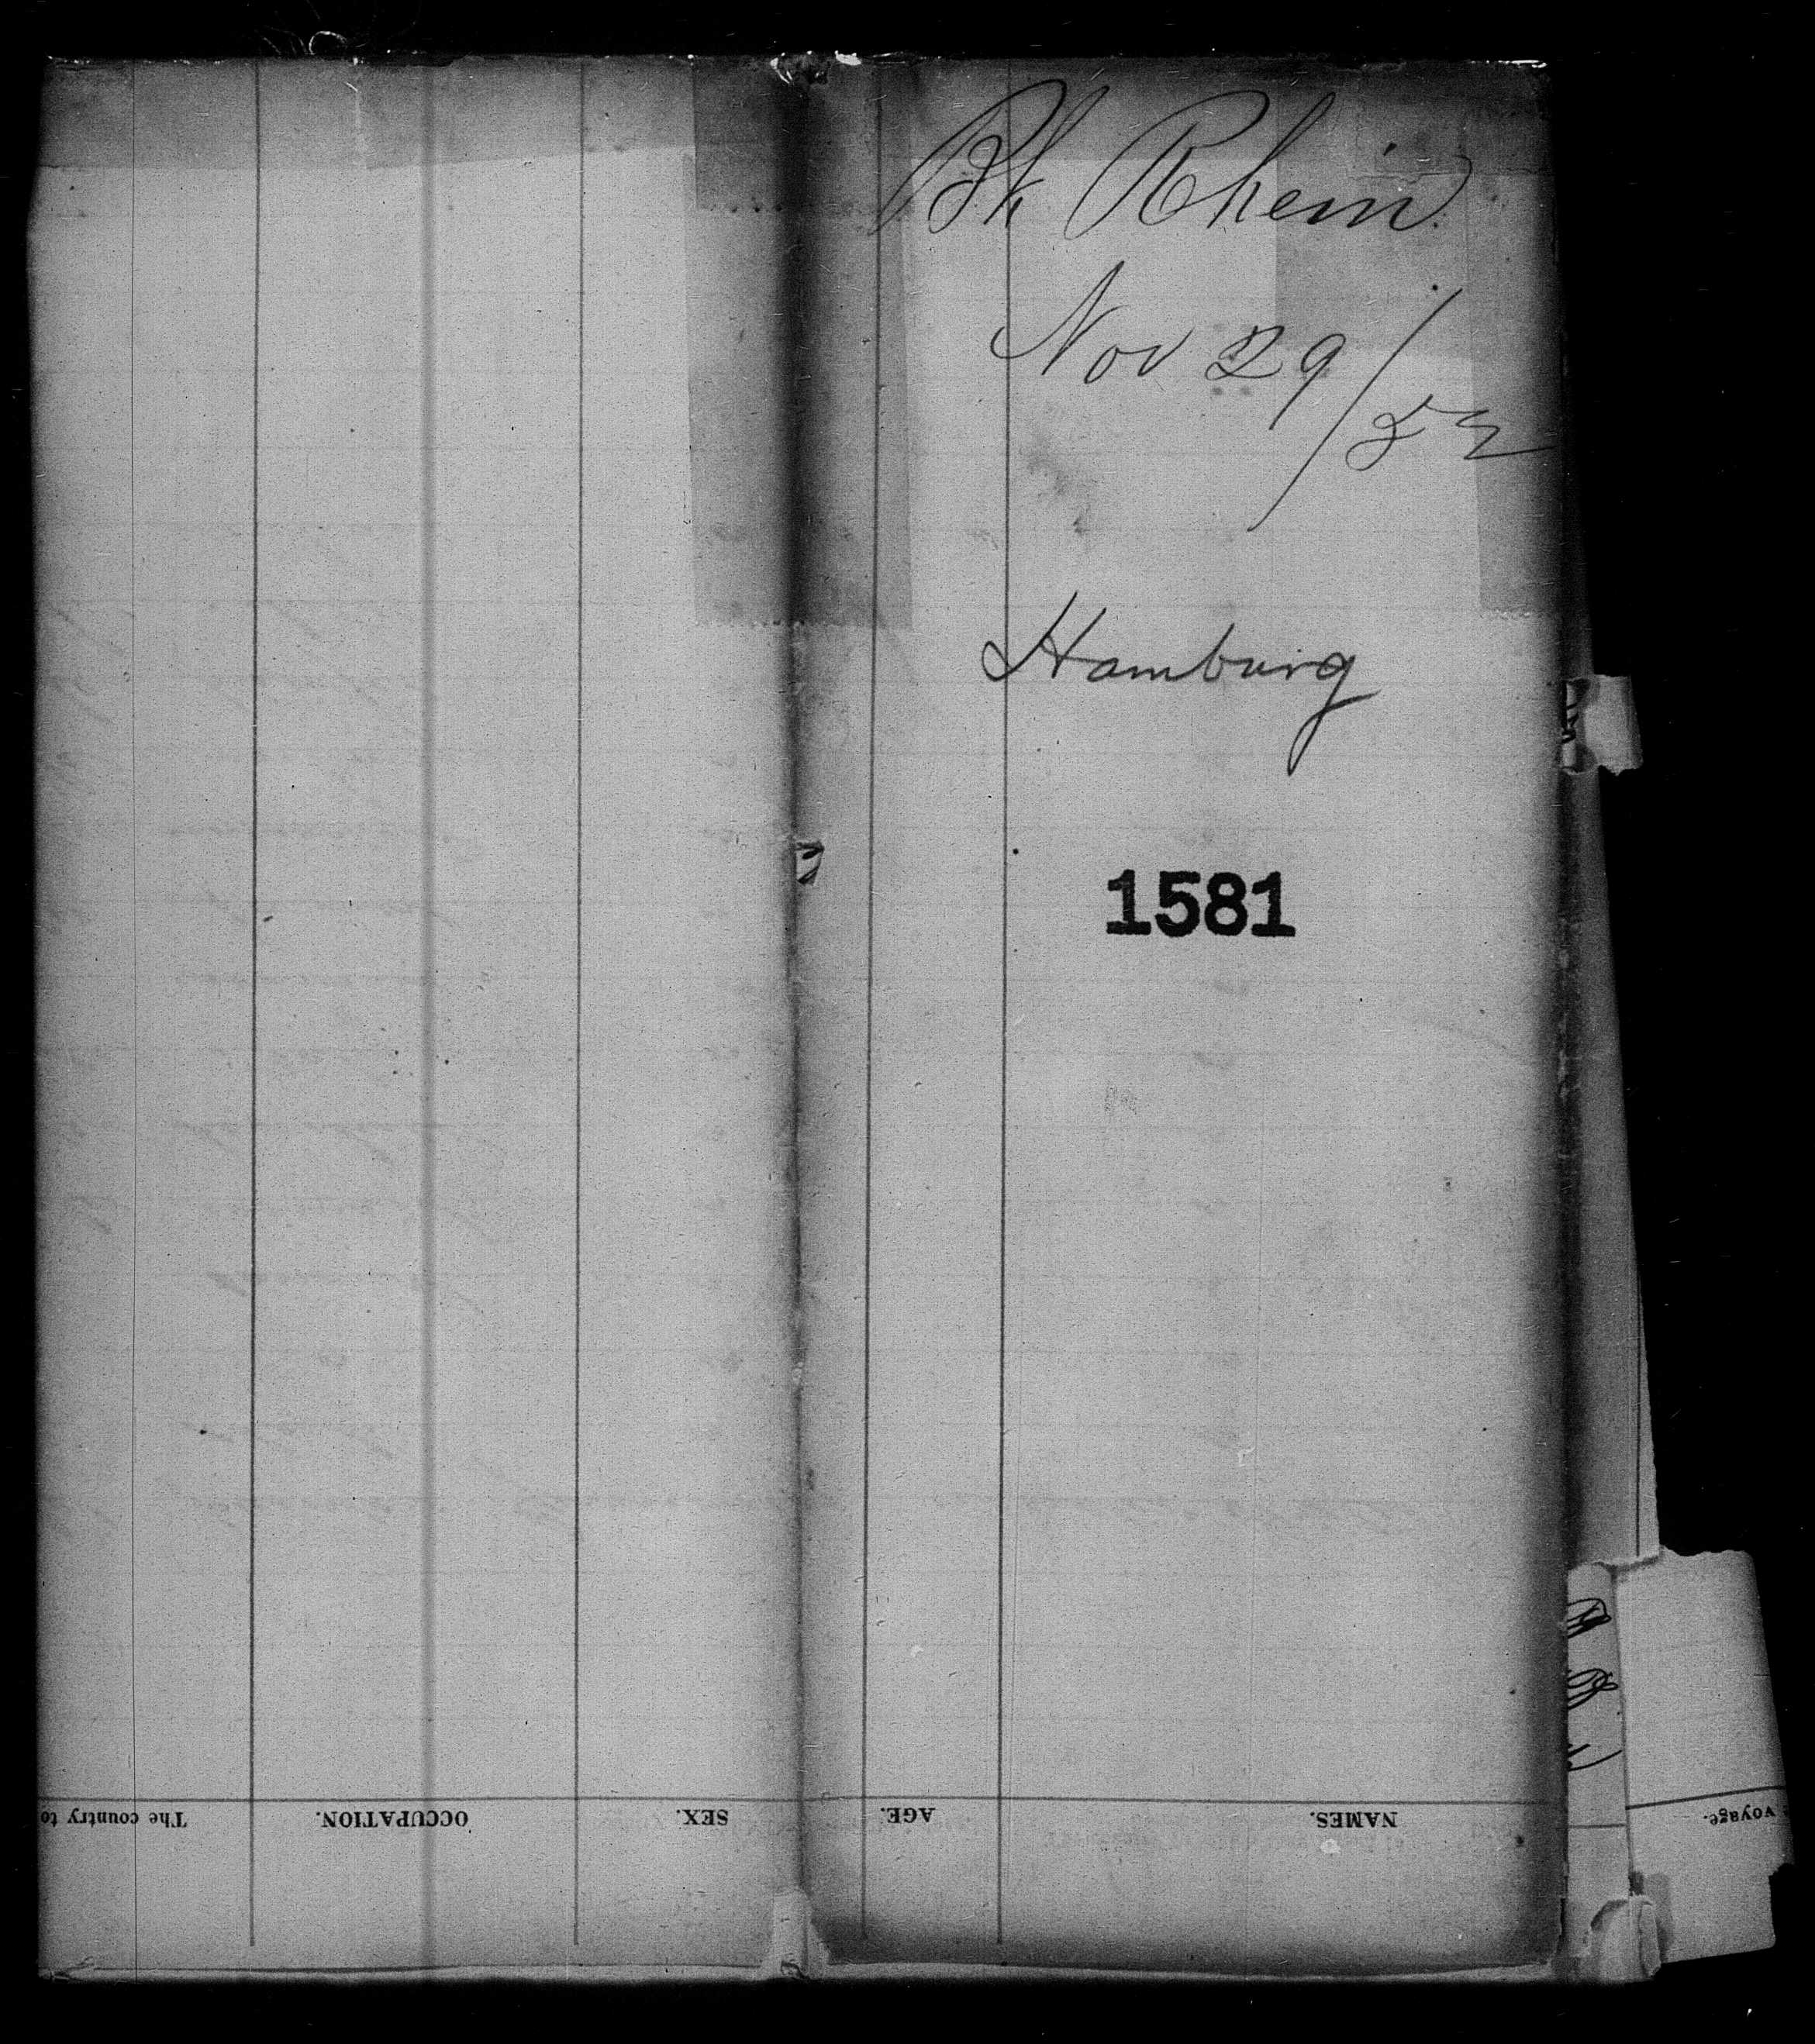 Bk Rhein
Nov 29/52
Hamburg
1581
NAMES.
AGE.
SEX.
OCCUPATION.
The country to
voyage.